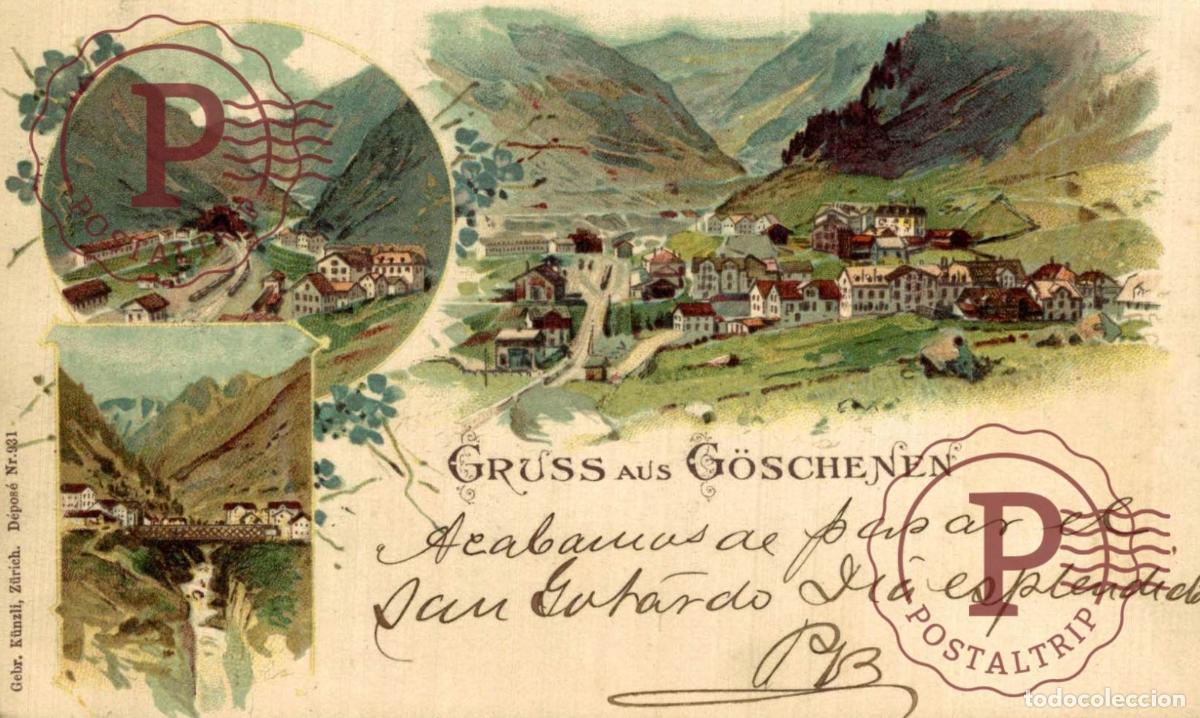 GRUSS AUS GÖSCHENEN
Acabamos de pasar el
San Gotardo Dia esplendido
PB
Gebr. Künzli, Zürich. Déposé Nr. 931
P
POSTALTRIP
P
POSTALTRIP
todocoleccion